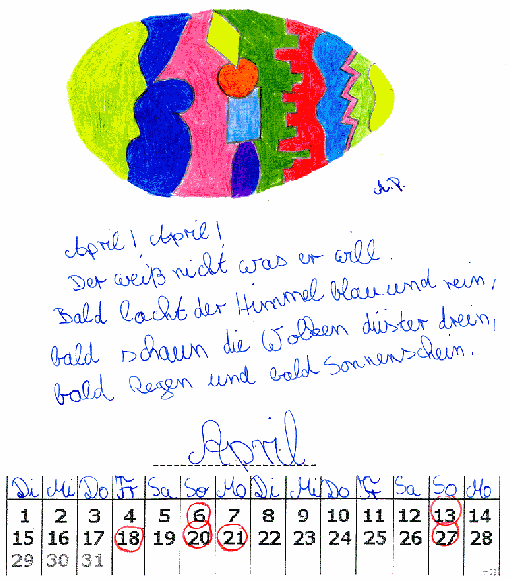 A.P.
April! April!
Der weiß nicht was er will.
Bald lacht der Himmel blau und rein,
bald schaun die Wolken düster drein,
bald Regen und bald Sonnenschein.
April
Di Mi Do Fr Sa So Mo Di Mi Do Fr Sa So Mo
1 2 3 4 5 6 7 8 9 10 11 12 13 14
15 16 17 18 19 20 21 22 23 24 25 26 27 28
29 30 31